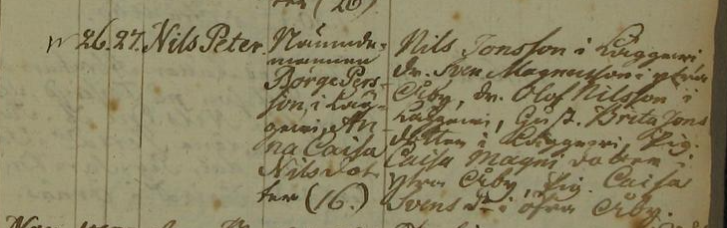 ter (26)
n 26. 27. Nils Peter.
Nämnde-
mannen
Börge Pers-
son, i Läg-
geri, An-
na Caisa
Nilsdot-
ter (16.)
Nils Jonsson i Läggeri
dr. Sven Magnusson i ytra
Åby, dr. Olof Nilsson i
Läggeri, Gust. Brita Jons
dotter i Läggeri, Pig.
Caisa Magni dotter i
ytra Åby, Pig. Caisa
Svens dr i öfra Åby.